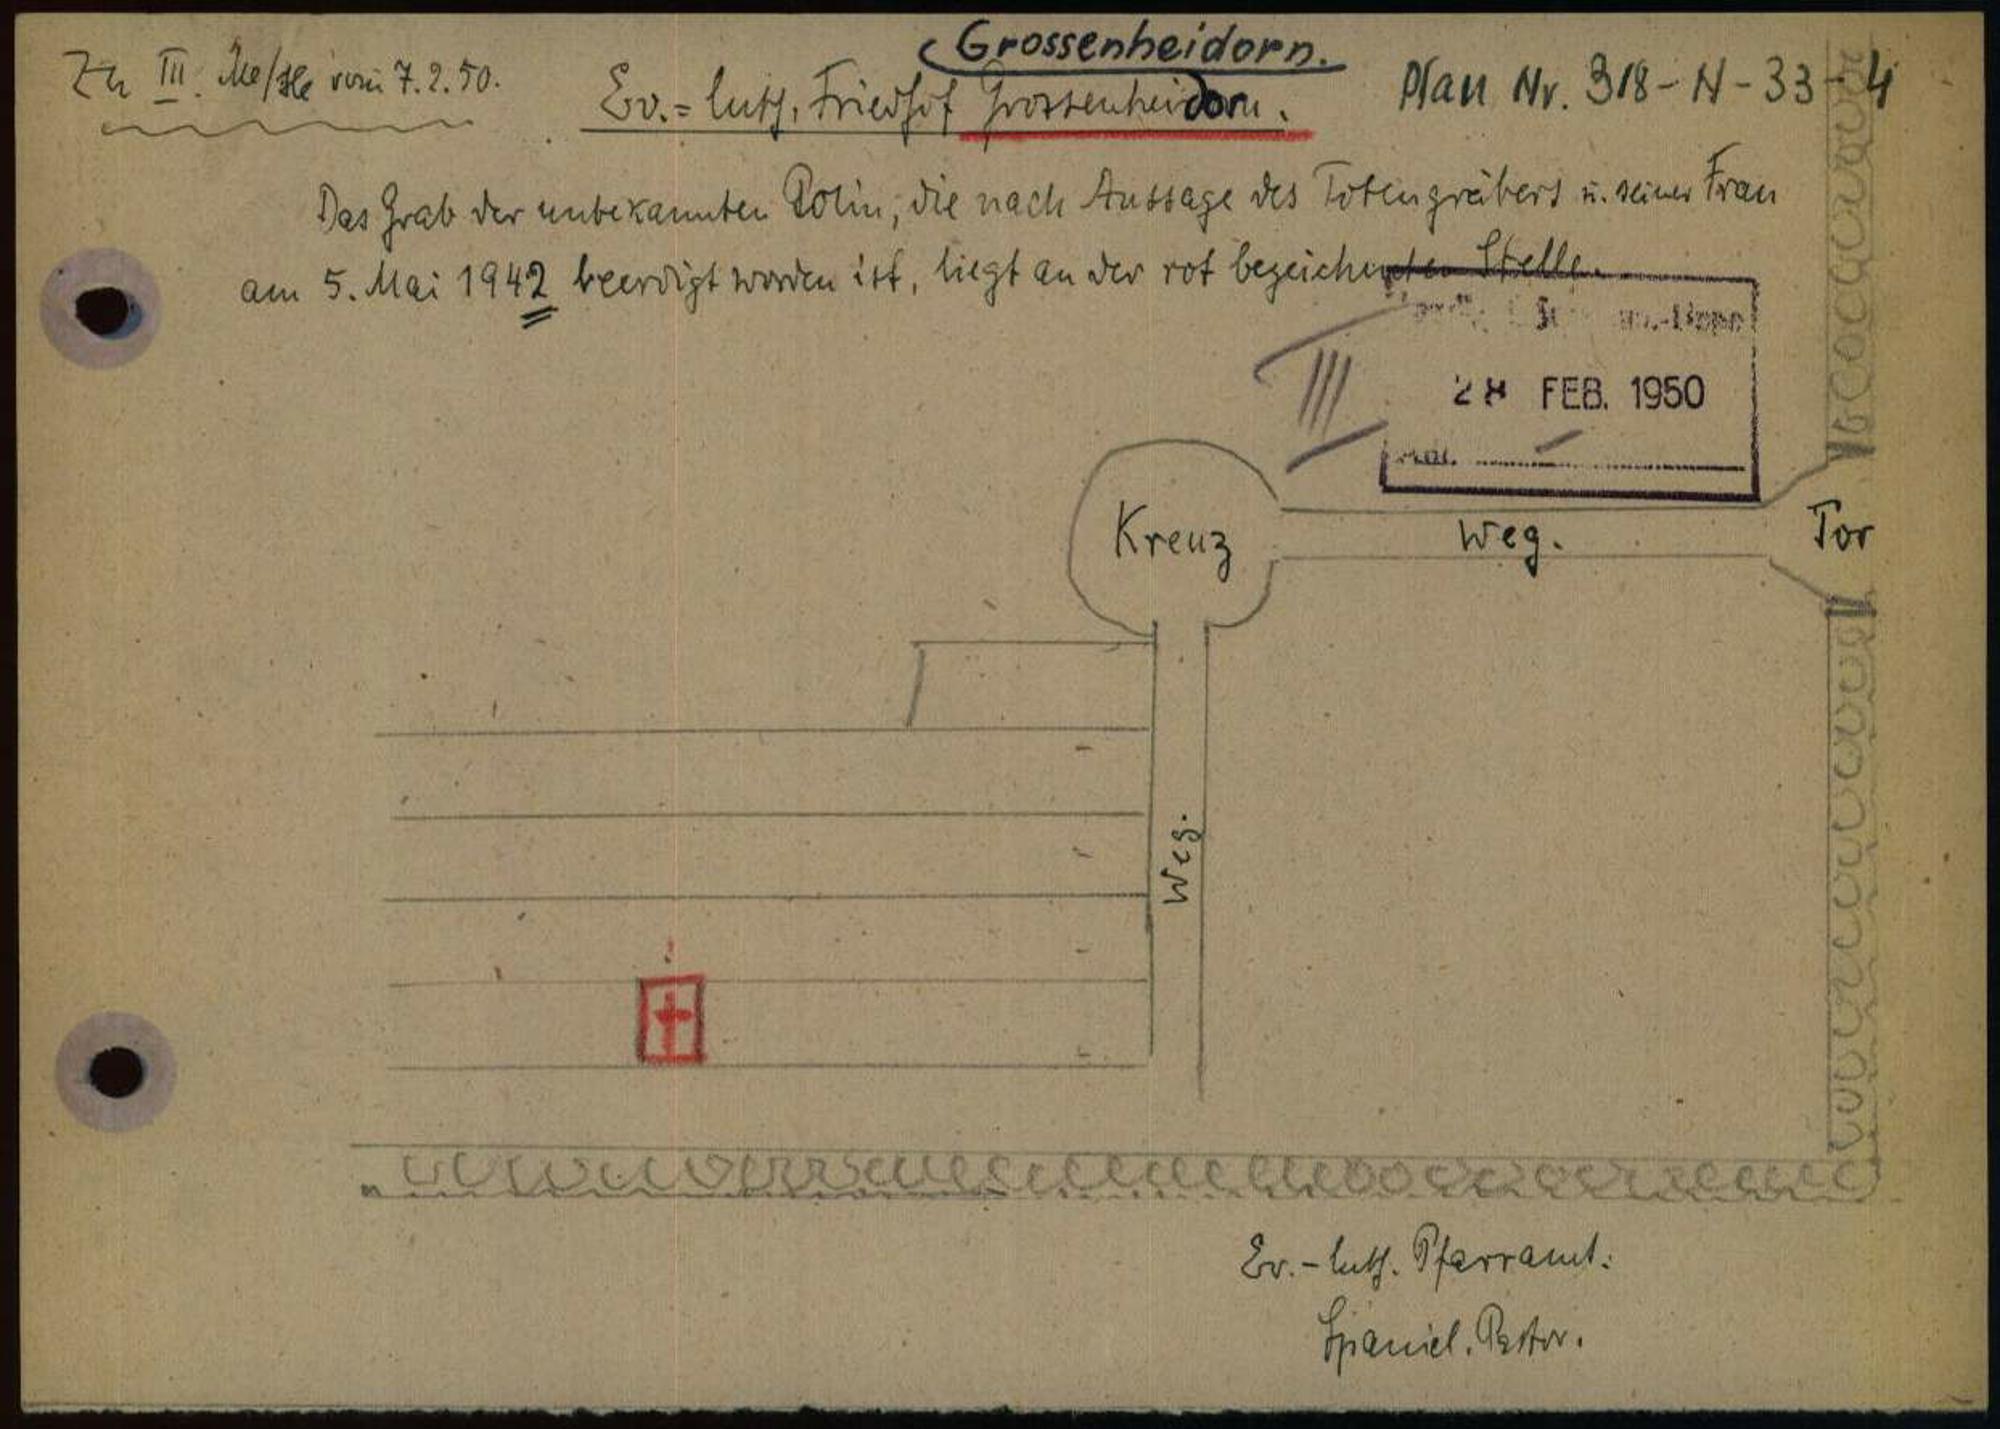 Grossenheidorn.
Zu III. Me/He vom 7.2.50.
Ev.= luth. Friedhof Grossenheidorn.
Plan Nr. 318-N-33-4
Das Grab der unbekannten Polin, die nach Aussage des Totengräbers u. seiner Frau
am 5. Mai 1942 beerdigt worden ist, liegt an der rot bezeichneten Stelle.
-Lippe
III
28 FEB. 1950
Abt.
Kreuz
Weg.
Tor
Weg.
Ev.-luth. Pfarramt:
Spaniel. Pastor.